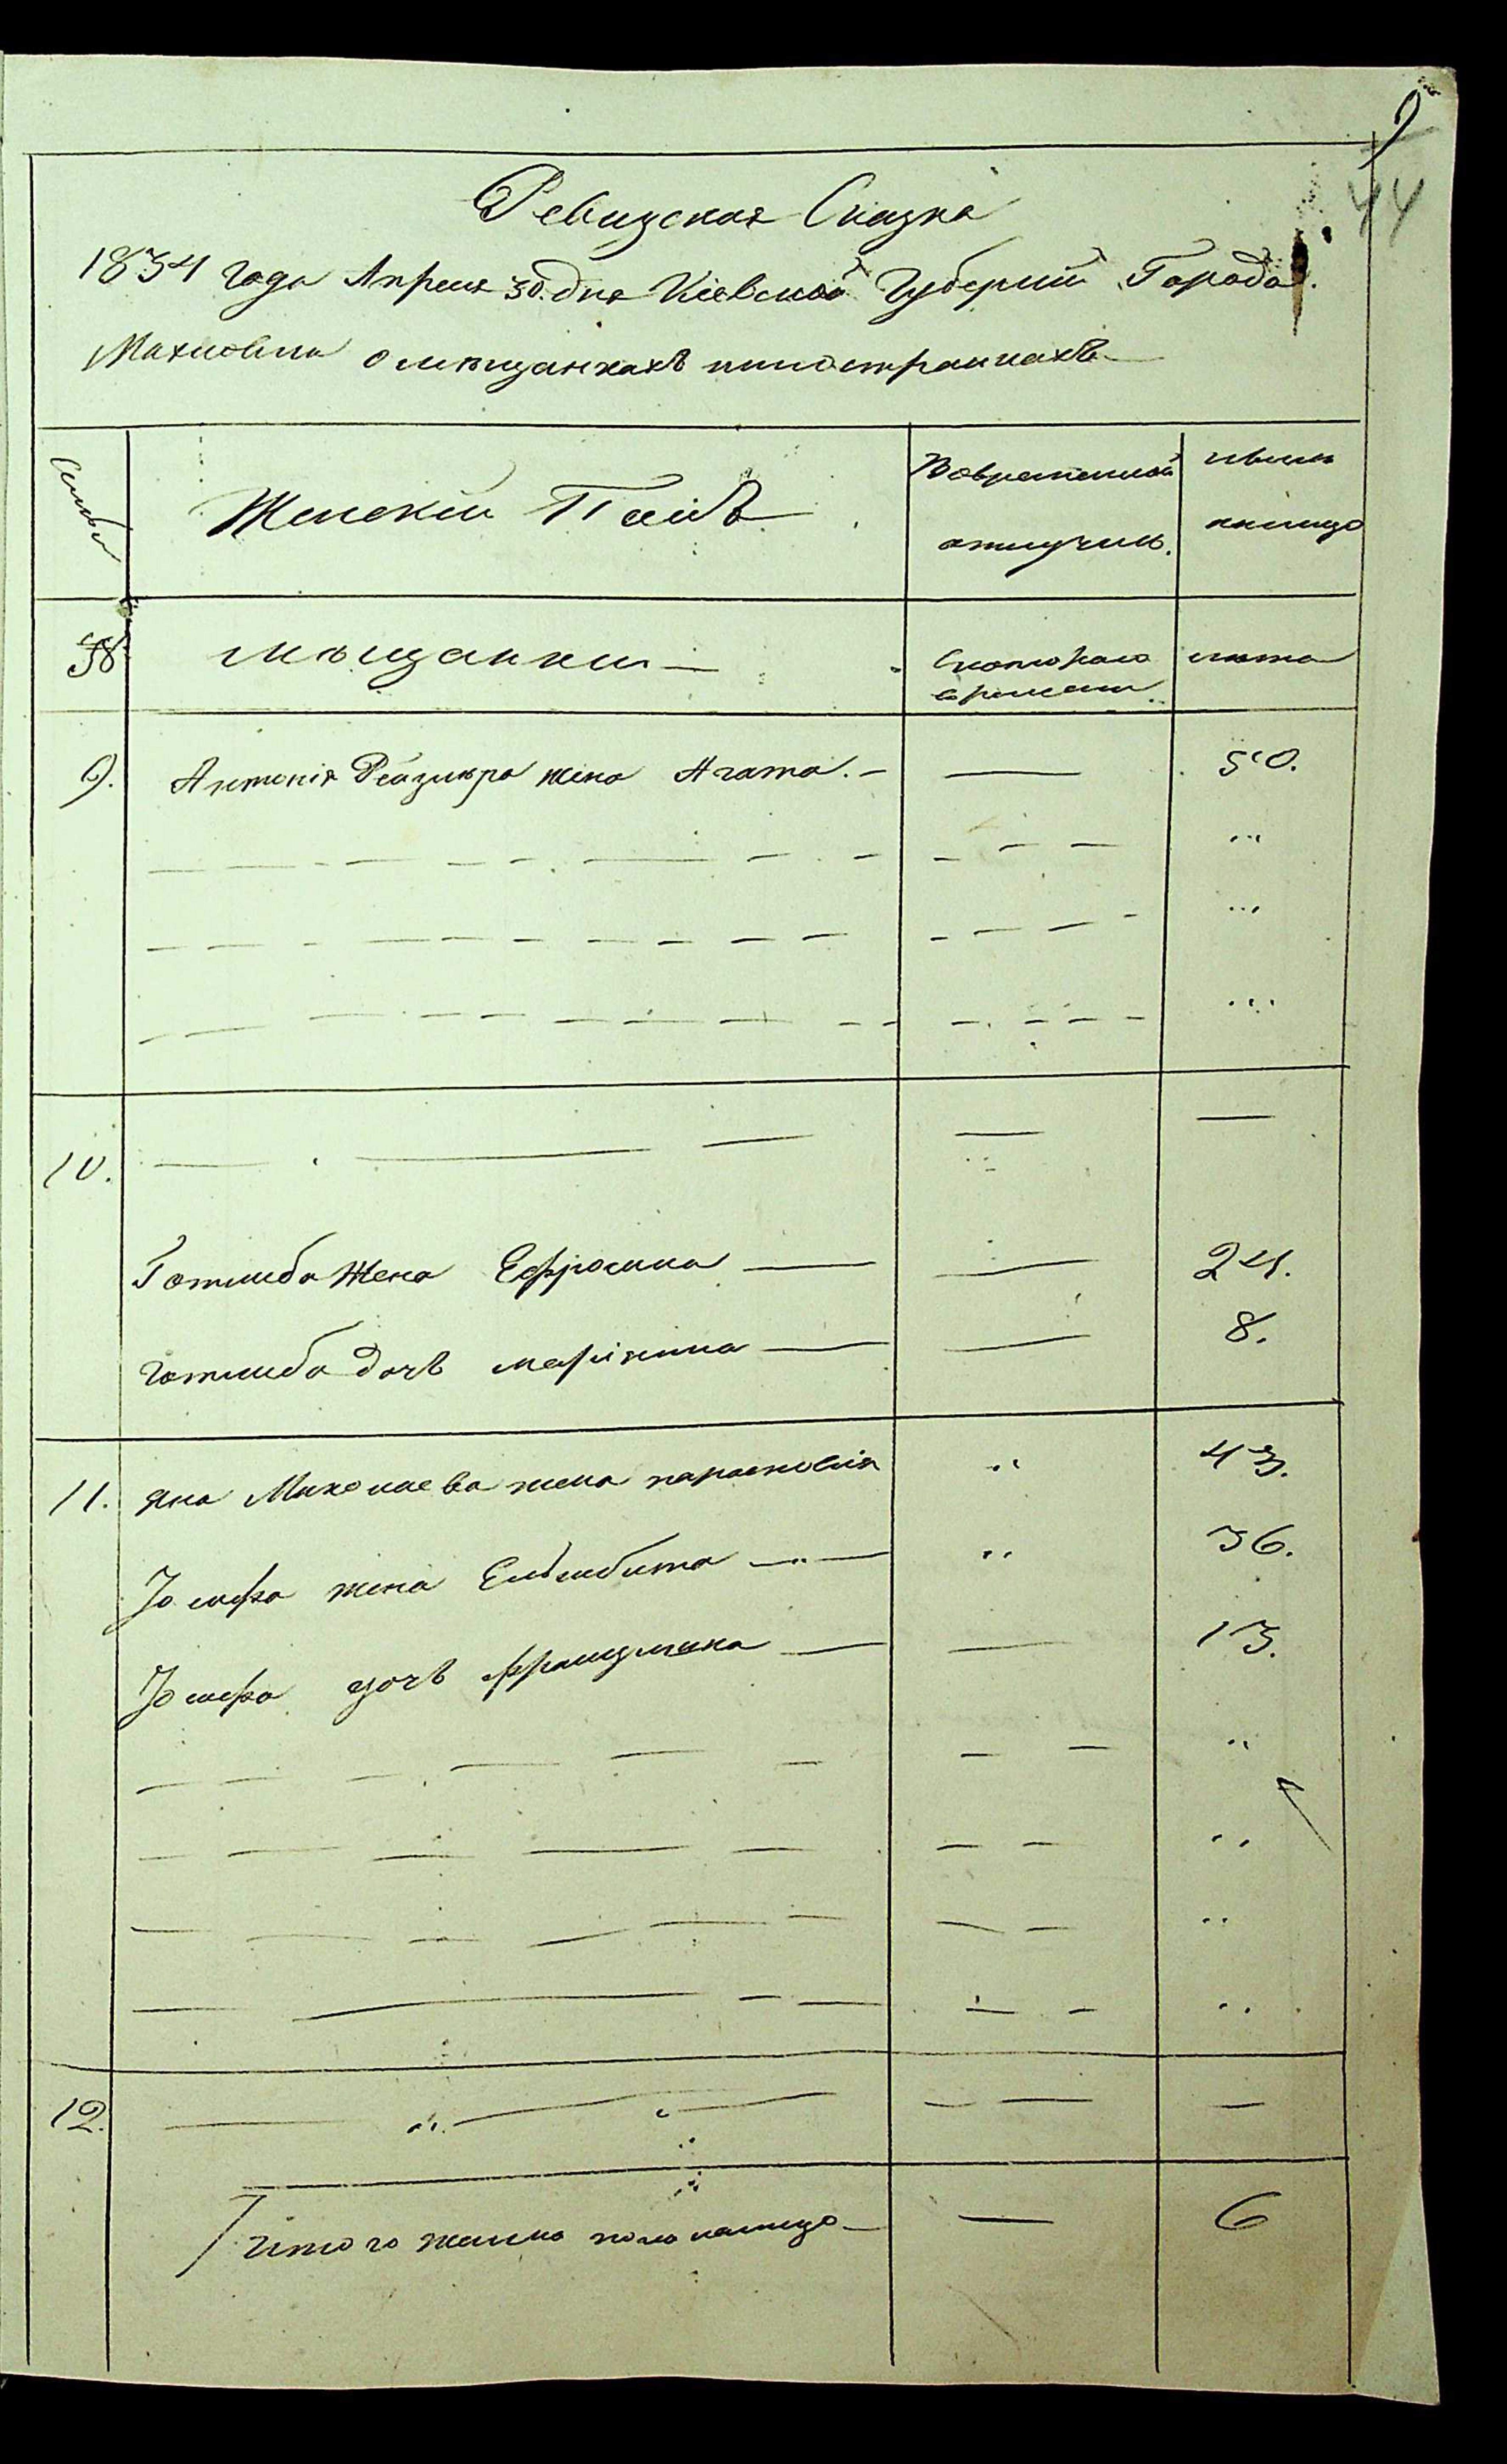 9
44
Ревизская Сказка
1834 года Апреля 30. дня Кіевской Губерніи Города
Махновки о мѣщанкахъ иностранкахъ
Семьи
Женскій Полъ
Вовременной отлучкѣ.
нынѣ налицо
№
мѣщанки
Скотораго времени
лѣта
9. Антонія Рейзнера жена Агата. 50.
10.
Готлиба Жена Ефросина 24.
Готлиба дочь Маріянна 8.
11. Яна Миколаева жена парасковія 43.
Іосифа жена Елжбита 36.
Іосифа дочь Францишка 13.
12.
Итого женска пола налицо 6